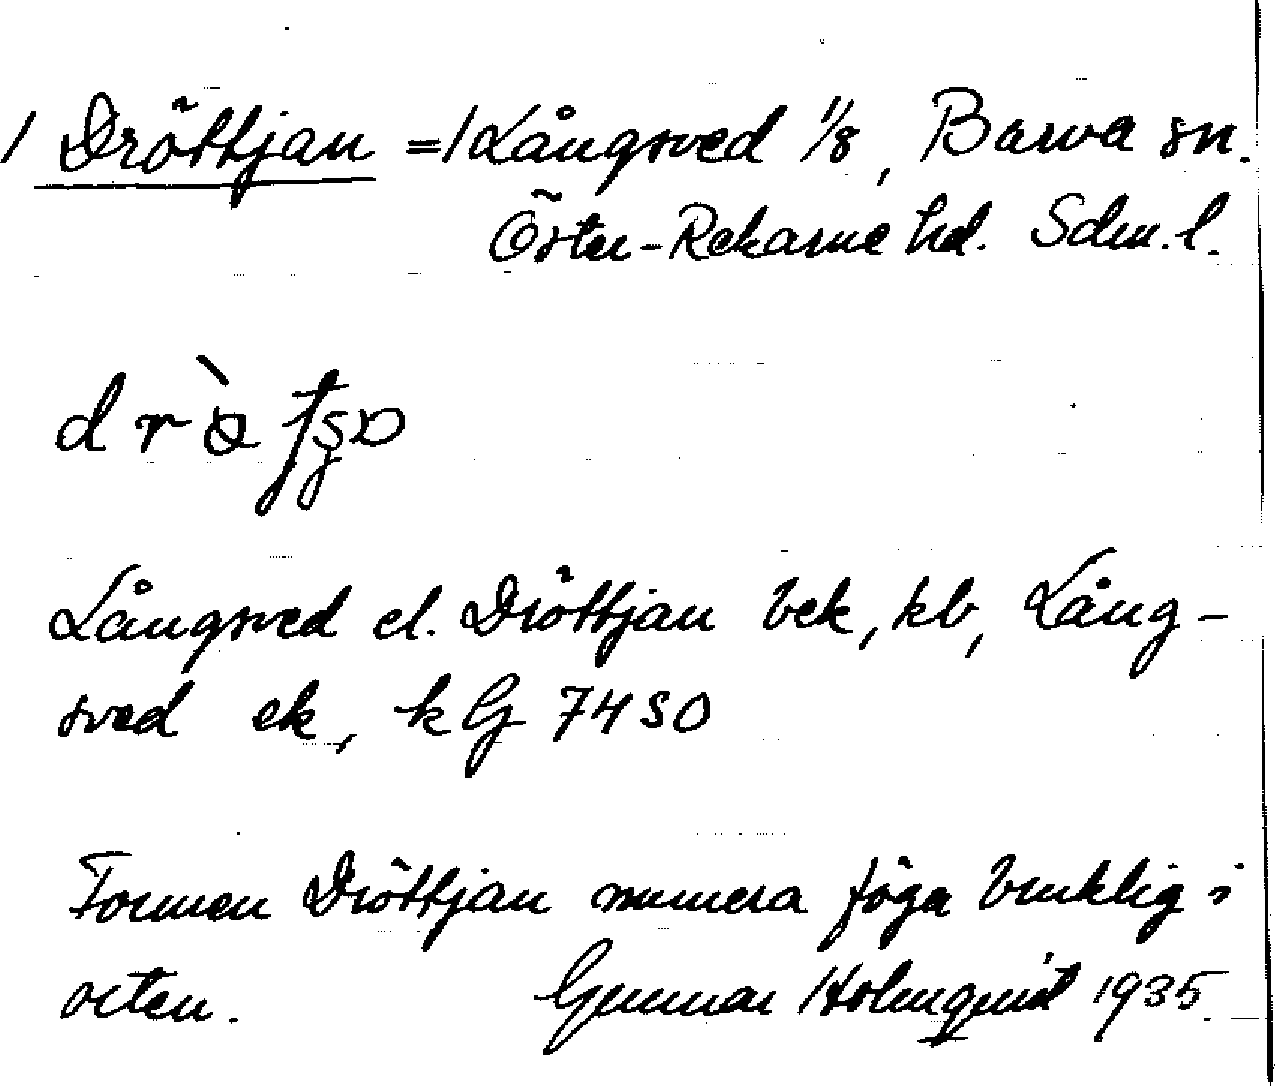 / Dröttjan = / Långsved 1/8, Barva sn.
Öster-Rekarne hd. Sdm. l.
Långsved el. Dröttjan bek, kb, Lång-
sved ek, kG 7450
Formen Dröttjan numera föga bruklig i
orten. Gunnar Holmquist 1935